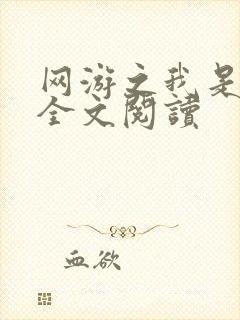 网游之我是
全文閱讀
血欲